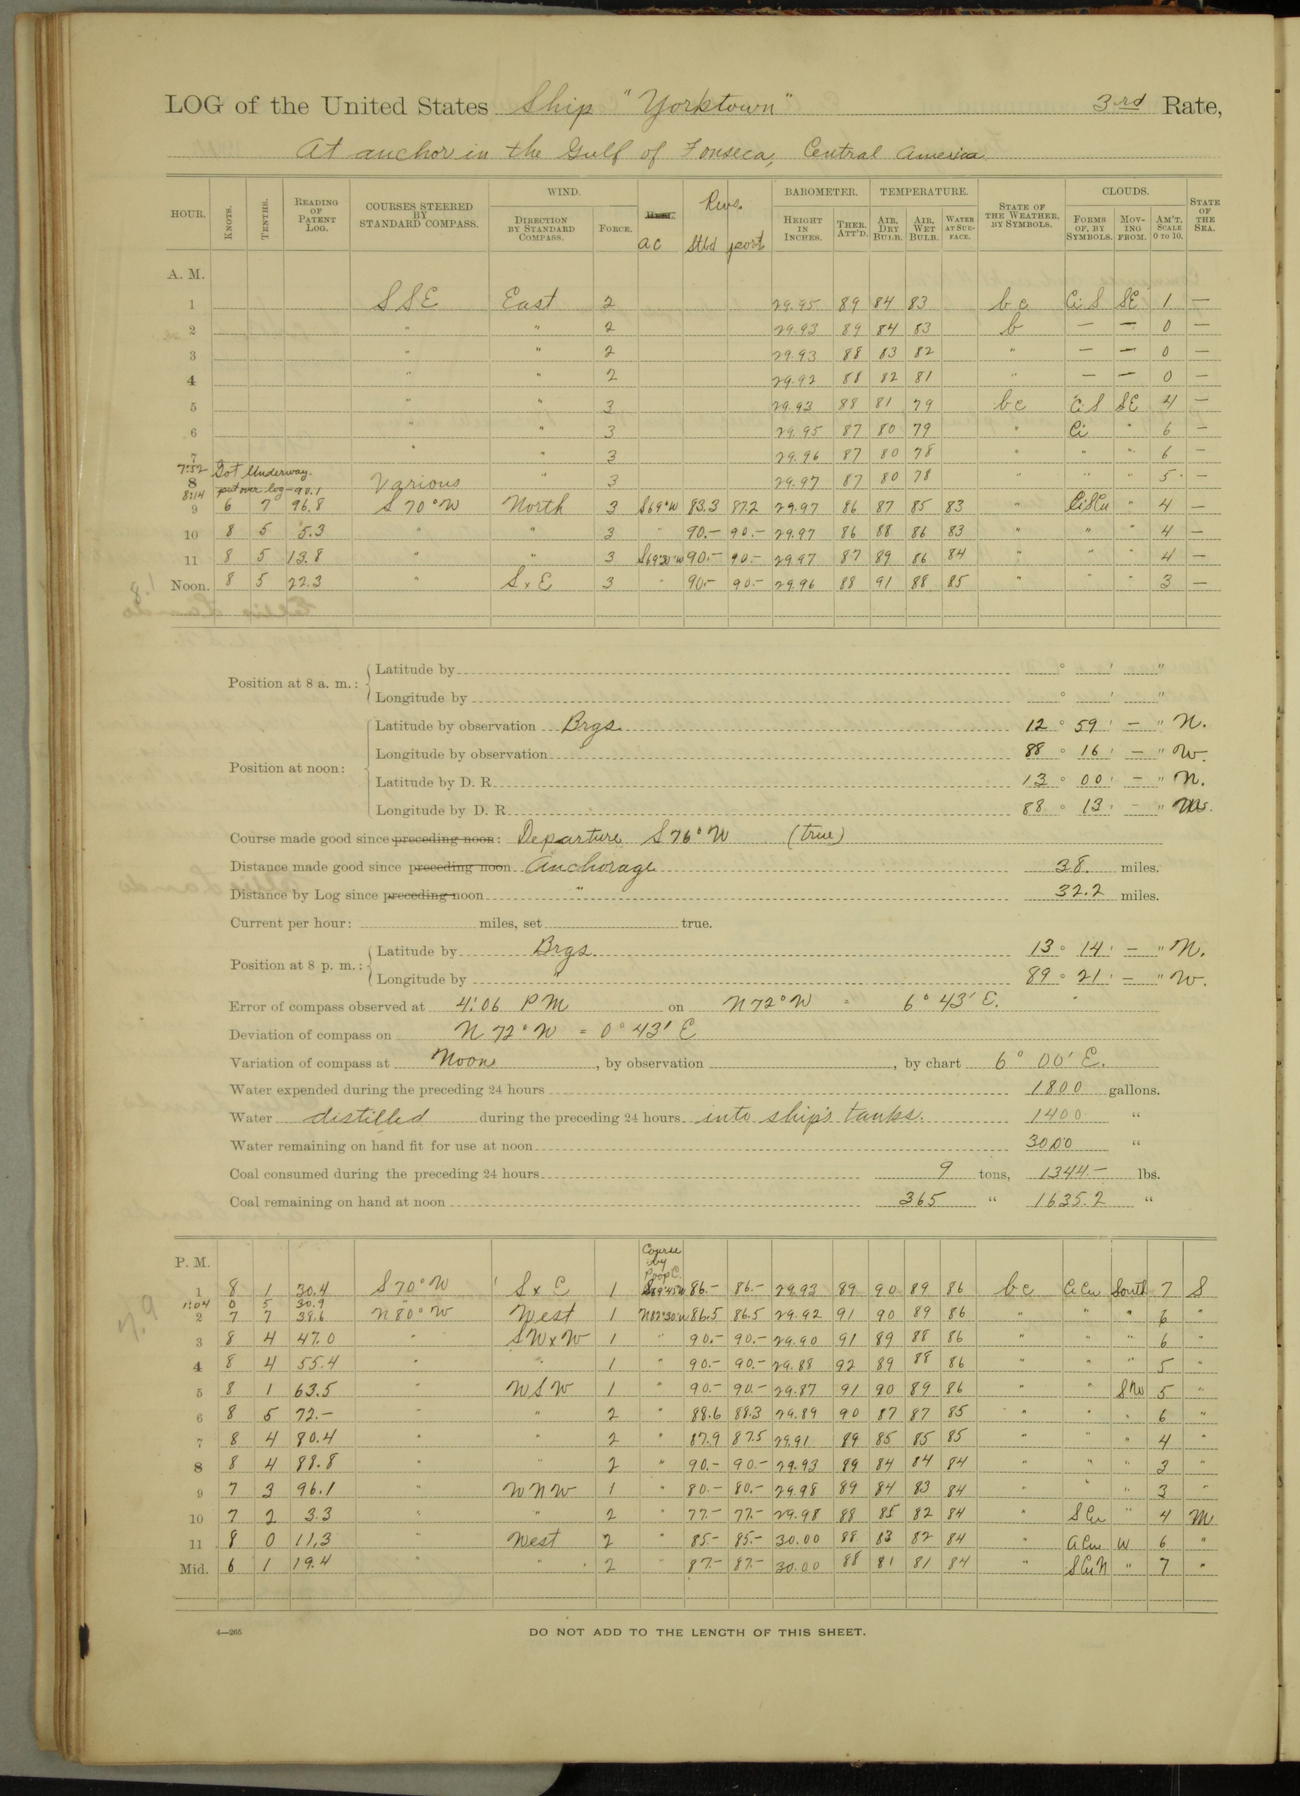 LOG of the United States Ship "Yorktown" 3rd Rate,
At anchor in the Gulf of Fonseca, Central America
HOUR. KNOTS. TENTHS. READING OF PATENT LOG. COURSES STEERED BY STANDARD COMPASS. WIND. DIRECTION BY STANDARD COMPASS. FORCE. a c Revs. Stbd port BAROMETER. HEIGHT IN INCHES. THER. ATT'D. TEMPERATURE. AIR, DRY BULB. AIR, WET BULB. WATER AT SURFACE. STATE OF THE WEATHER, BY SYMBOLS. CLOUDS. FORMS OF, BY SYMBOLS. MOVING FROM. AM'T. SCALE 0 TO 10. STATE OF THE SEA.
A. M.
1 SSE East 2 29.95 89 84 83 bc Ci S SE 1 —
2 " " 2 29.93 89 84 83 b — — 0 —
3 " " 2 29.93 88 83 82 " — — 0 —
4 " " 2 29.92 88 82 81 " — — 0 —
5 " " 3 29.93 88 81 79 bc Ci S SE 4 —
6 " " 3 29.95 87 80 79 " Ci " 6 —
7 " " 3 29.96 87 80 78 " " " 6 —
7:52 Got Underway.
8 Various " 3 29.97 87 80 78 " " " 5 -
8:14 put over log - 90.1
9 6 7 96.8 S 70° W North 3 S69°W 83.3 87.2 29.97 86 87 85 83 " CiSCu " 4 —
10 8 5 5.3 " " 3 " 90.- 90.- 29.97 86 88 86 83 " " " 4 —
11 8 5 13.8 " " 3 S69°30'W 90.- 90.- 29.97 87 89 86 84 " " " 4 —
Noon. 8 5 22.3 " S x E 3 " 90.- 90.- 29.96 88 91 88 85 " " " 3 —
Position at 8 a. m.: Latitude by ° ' "
Longitude by ° ' "
Position at noon: Latitude by observation Brgs. 12 ° 59 ' — " N.
Longitude by observation 88 ° 16 ' — " W.
Latitude by D. R. 13 ° 00 ' — " N.
Longitude by D. R. 88 ° 13 ' — " W.
Course made good since preceding noon: Departure S 76° W (true)
Distance made good since preceding noon Anchorage 38. miles.
Distance by Log since preceding noon " 32.2 miles.
Current per hour: miles, set true.
Position at 8 p. m.: Latitude by Brgs. 13 ° 14 ' — " N.
Longitude by " 89 ° 21 ' — " W.
Error of compass observed at 4:06 PM on N 72° W = 6° 43' E.
Deviation of compass on N 72° W = 0° 43' E
Variation of compass at Noon, by observation , by chart 6° 00' E.
Water expended during the preceding 24 hours 1800 gallons.
Water distilled during the preceding 24 hours into ship's tanks. 1400 "
Water remaining on hand fit for use at noon 3000 "
Coal consumed during the preceding 24 hours 9 tons, 1344.- lbs.
Coal remaining on hand at noon 365 " 1635.2 "
P. M. Course by Poop C.
1 8 1 30.4 S 70° W S x E 1 S69°45'W 86.- 86.- 29.93 89 90 89 86 bc ACu South 7 S
1:04 0 5 30.9
2 7 7 38.6 N 80° W West 1 N82°30'W 86.5 86.5 29.92 91 90 89 86 " " " 6 "
3 8 4 47.0 SWxW 1 " 90.- 90.- 29.90 91 89 88 86 " " " 6 "
4 8 4 55.4 " " 1 " 90.- 90.- 29.88 92 89 88 86 " " " 5 "
5 8 1 63.5 " WSW 1 " 90.- 90.- 29.87 91 90 89 86 " " SW 5 "
6 8 5 72.- " " 2 " 88.6 88.3 29.89 90 87 87 85 " " " 6 "
7 8 4 80.4 " " 2 " 87.9 87.5 29.91 89 85 85 85 " " " 4 "
8 8 4 88.8 " " 2 " 90.- 90.- 29.93 89 84 84 84 " " " 3 "
9 7 3 96.1 " WNW 1 " 80.- 80.- 29.98 89 84 83 84 " " " 3 "
10 7 2 3.3 " " 2 " 77.- 77.- 29.98 88 85 82 84 " SCu " 4 M
11 8 0 11.3 " West 2 " 85.- 85.- 30.00 88 83 82 84 " ACu W 6 "
Mid. 6 1 19.4 " " 2 " 87.- 87.- 30.00 88 81 81 84 " SCuN " 7 "
4—265
DO NOT ADD TO THE LENGTH OF THIS SHEET.